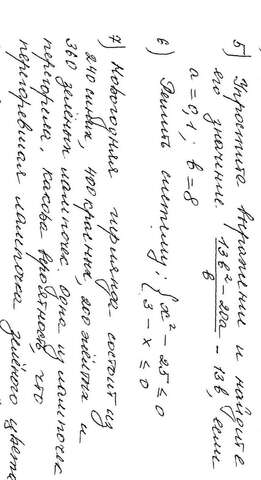 5) Упростите выражение и найдите
его значение (13b² - 20a)/b - 13b, если
a = 0,1; b = 8
6) Решить систему: { x² - 25 ≤ 0
3 - x ≤ 0
7) Новогодняя гирлянда состоит из
240 синих, 400 красных, 200 жёлтых и
360 зелёных лампочек. Одна из лампочек
перегорела, какова вероятность, что
перегоревшая лампочка зелёного цвета